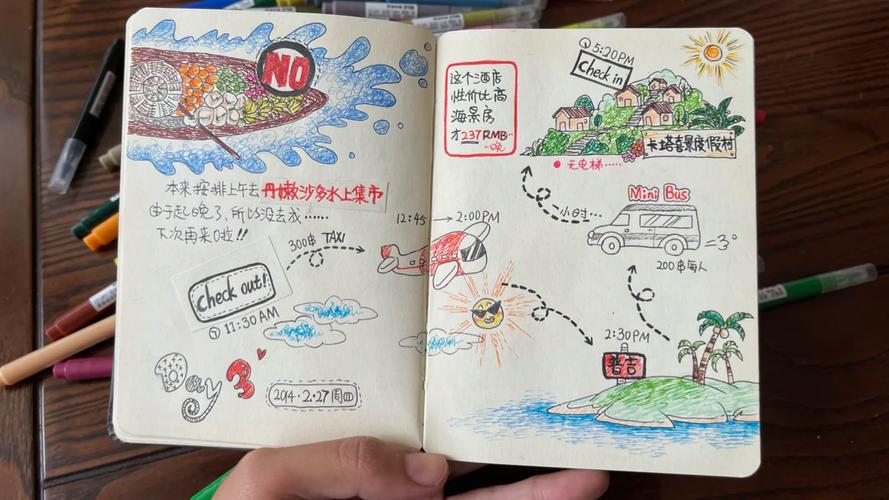 NO
本来安排上午去丹嫩沙多水上集市
由于起晚了,所以没去成……
下次再来啦!!
300฿ TAXI
check out!
11:30 AM
Day 3
2014·2·27 周四
12:45 → 2:00PM
这个酒店
性价比高
海景房
才237RMB
一晚
5:20PM
check in
卡塔喜景度假村
无电梯……
Mini Bus
小时…
200฿每人
2:30PM
普吉